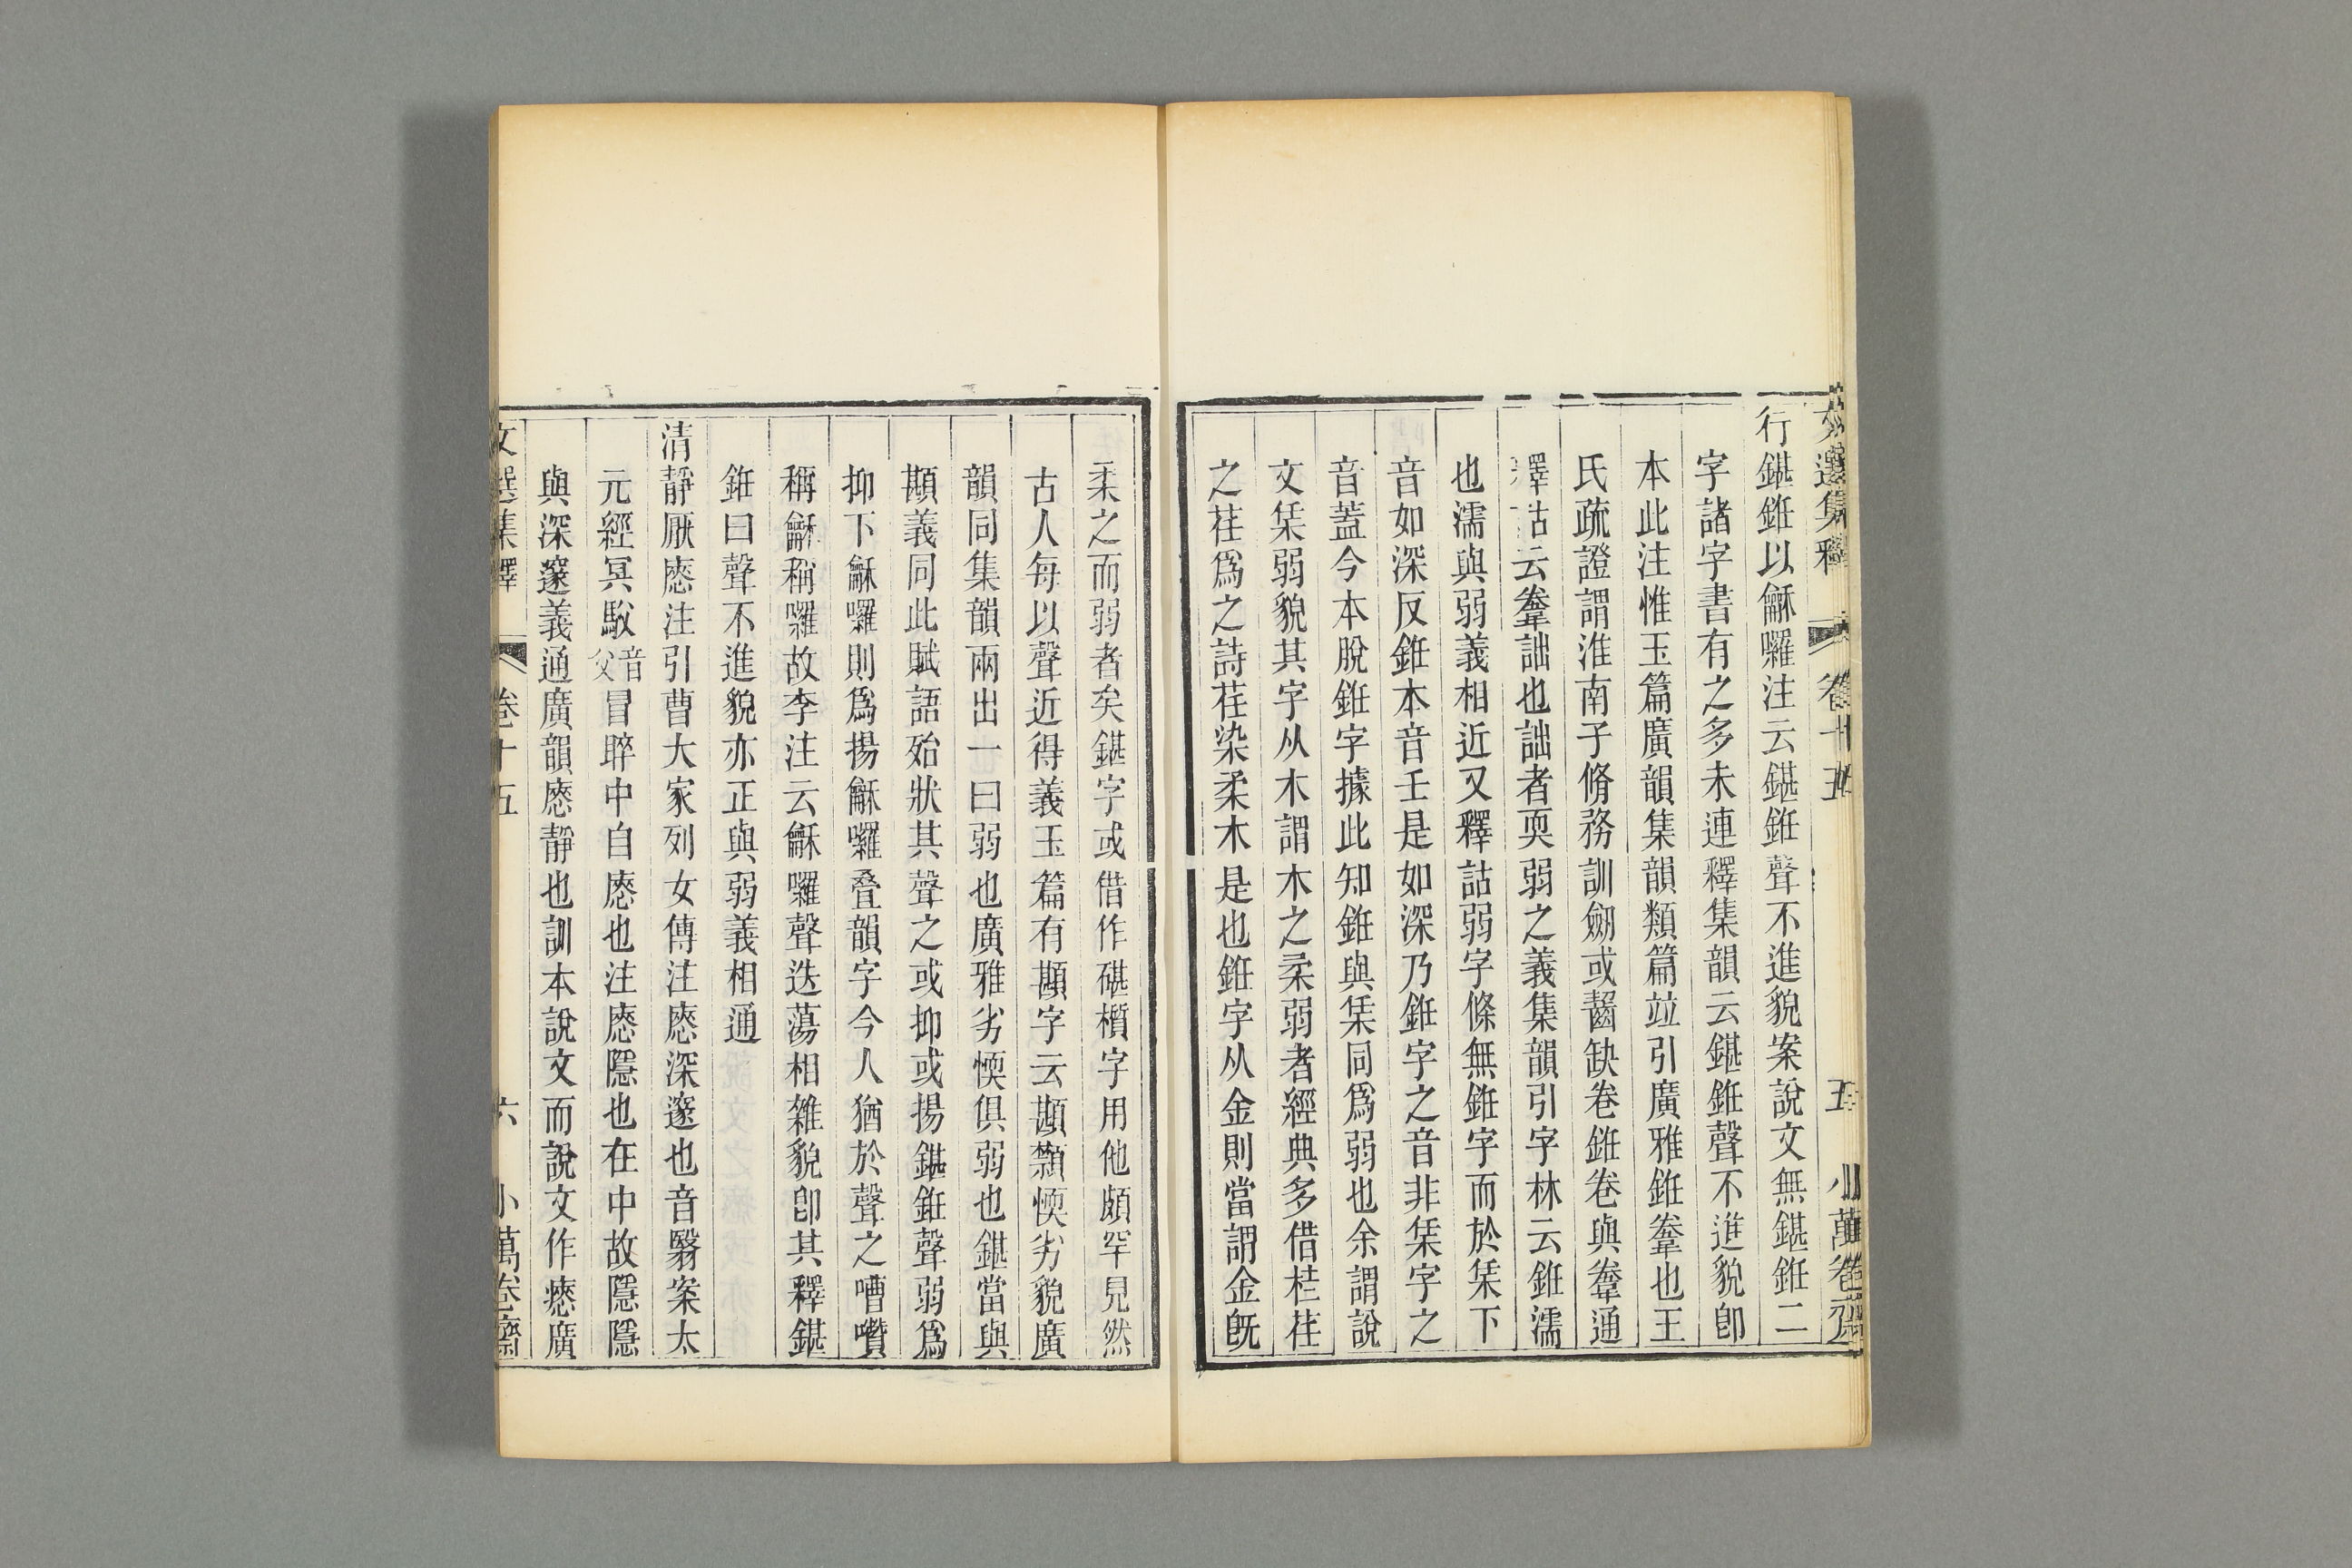 文選集釋 卷十五 五 小萬卷齋
行鍖銋以龢囉注云鍖銋聲不進貌案說文無鍖銋二
字諸字書有之多未連釋集韻云鍖銋聲不進貌卽
本此注惟玉篇廣韻集韻類篇竝引廣雅銋鞪也王
氏疏證謂淮南子脩務訓劒或齧缺卷銋卷與鞪通
釋詁云鞪詘也詘者耎弱之義集韻引字林云銋濡
也濡與弱義相近又釋詁弱字條無銋字而於栠下
音如深反銋本音壬是如深乃銋字之音非栠字之
音蓋今本脫銋字據此知銋與栠同爲弱也余謂說
文栠弱貌其字从木謂木之柔弱者經典多借桂荏
之荏爲之詩荏染柔木是也銋字从金則當謂金旣
柔之而弱者矣鍖字或借作碪櫍字用他頗罕見然
古人每以聲近得義玉篇有顤字云顤纇愞劣貌廣
韻同集韻兩出一曰弱也廣雅劣愞俱弱也鍖當與
顤義同此賦語殆狀其聲之或抑或揚鍖銋聲弱爲
抑下龢囉則爲揚龢囉疊韻字今人猶於聲之嘈囋
稱龢稱囉故李注云龢囉聲迭蕩相雜貌卽其釋鍖
銋曰聲不進貌亦正與弱義相通
清靜厭瘱注引曹大家列女傳注瘱深邃也音翳案太
元經冥駇音父冒睟中自瘱也注瘱隱也在中故隱隱
與深邃義通廣韻瘱靜也訓本說文而說文作瘱廣
文選集釋 卷十五 六 小萬卷齋